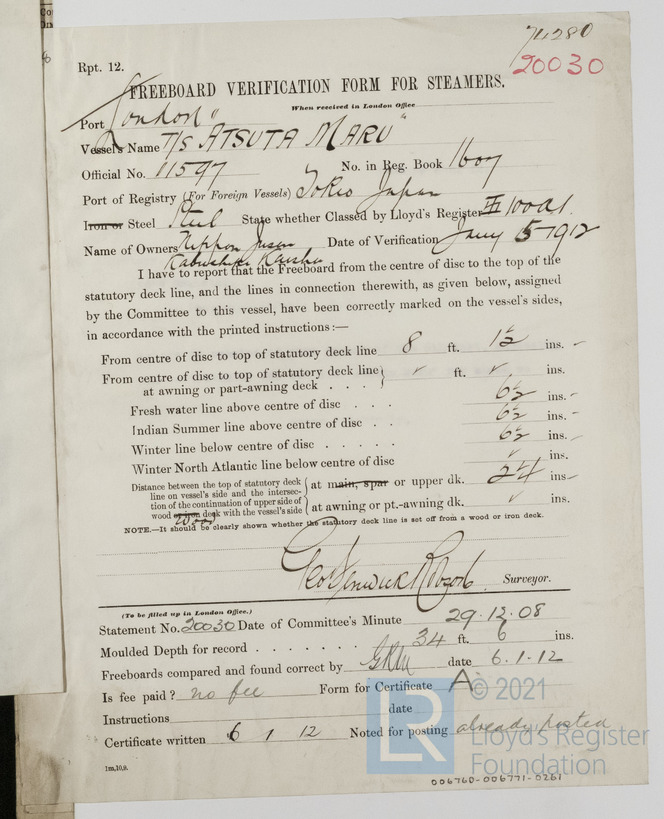 74280
20030
Rpt. 12.
FREEBOARD VERIFICATION FORM FOR STEAMERS.
When received in London Office
Port London
Vessel's Name T/S "ATSUTA MARU"
Official No. 11597 No. in Reg. Book 1607
Port of Registry (For Foreign Vessels) Tokio Japan
Iron or Steel Steel State whether Classed by Lloyd's Register 100A1.
Name of Owners Nippon Yusen Date of Verification Jany 5-1912
Kabushiki Kaisha
I have to report that the Freeboard from the centre of disc to the top of the
statutory deck line, and the lines in connection therewith, as given below, assigned
by the Committee to this vessel, have been correctly marked on the vessel's sides,
in accordance with the printed instructions:—
From centre of disc to top of statutory deck line 8 ft. 1½ ins.
From centre of disc to top of statutory deck line ft. ins.
at awning or part-awning deck . . .
Fresh water line above centre of disc . . . 6½ ins.
Indian Summer line above centre of disc . . 6½ ins.
Winter line below centre of disc . . . . . 6½ ins.
Winter North Atlantic line below centre of disc ins.
Distance between the top of statutory deck
line on vessel's side and the intersec-
tion of the continuation of upper side of
wood or iron deck with the vessel's side
at main, spar or upper dk. ins
at awning or pt.-awning dk. ins.
Wood
NOTE.—It should be clearly shown whether the statutory deck line is set off from a wood or iron deck.
Geo Fenwick Robson Surveyor.
(To be filled up in London Office.)
Statement No. 20030 Date of Committee's Minute 29.12.08
Moulded Depth for record . . . . . . . 34 ft. 6 ins.
Freeboards compared and found correct by date 6.1.12
Is fee paid? no fee Form for Certificate A
Instructions date
Certificate written 6 1 12 Noted for posting already posted
1m,10,9.
© 2021
LR
Lloyd's Register
Foundation
006760-006771-0261